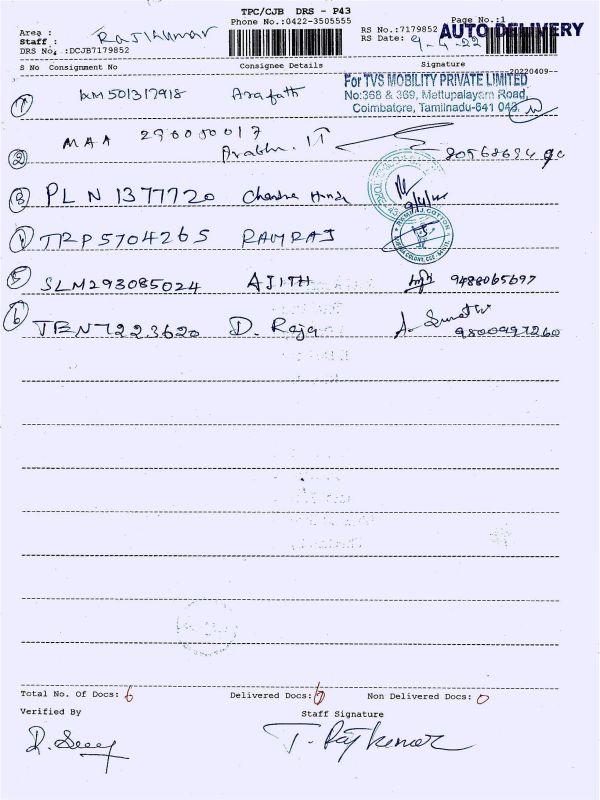 TPC/CJB DRS - P43
Phone No.:0422-3505555 Page No.:1
AUTO DELIVERY
Area :
Staff : RajKumar
RS No.:7179852
DRS No. :DCJB7179852
RS Date: 9-4-22
20220409--
S No Consignment No Consignee Details Signature
For TVS MOBILITY PRIVATE LIMITED
No:368 & 369, Mettupalayam Road,
Coimbatore, Tamilnadu-641 043.
1 501317918 Arafath
2 MAA Prabhu. IT
3 PLN 1377720
4 TRP5704265 RAMRAJ
5 SLM293085024 AJITH 9488065697
6 D. Raja
Total No. Of Docs: 6 Delivered Docs: 6 Non Delivered Docs: 0
Verified By Staff Signature
T. Rajkumar